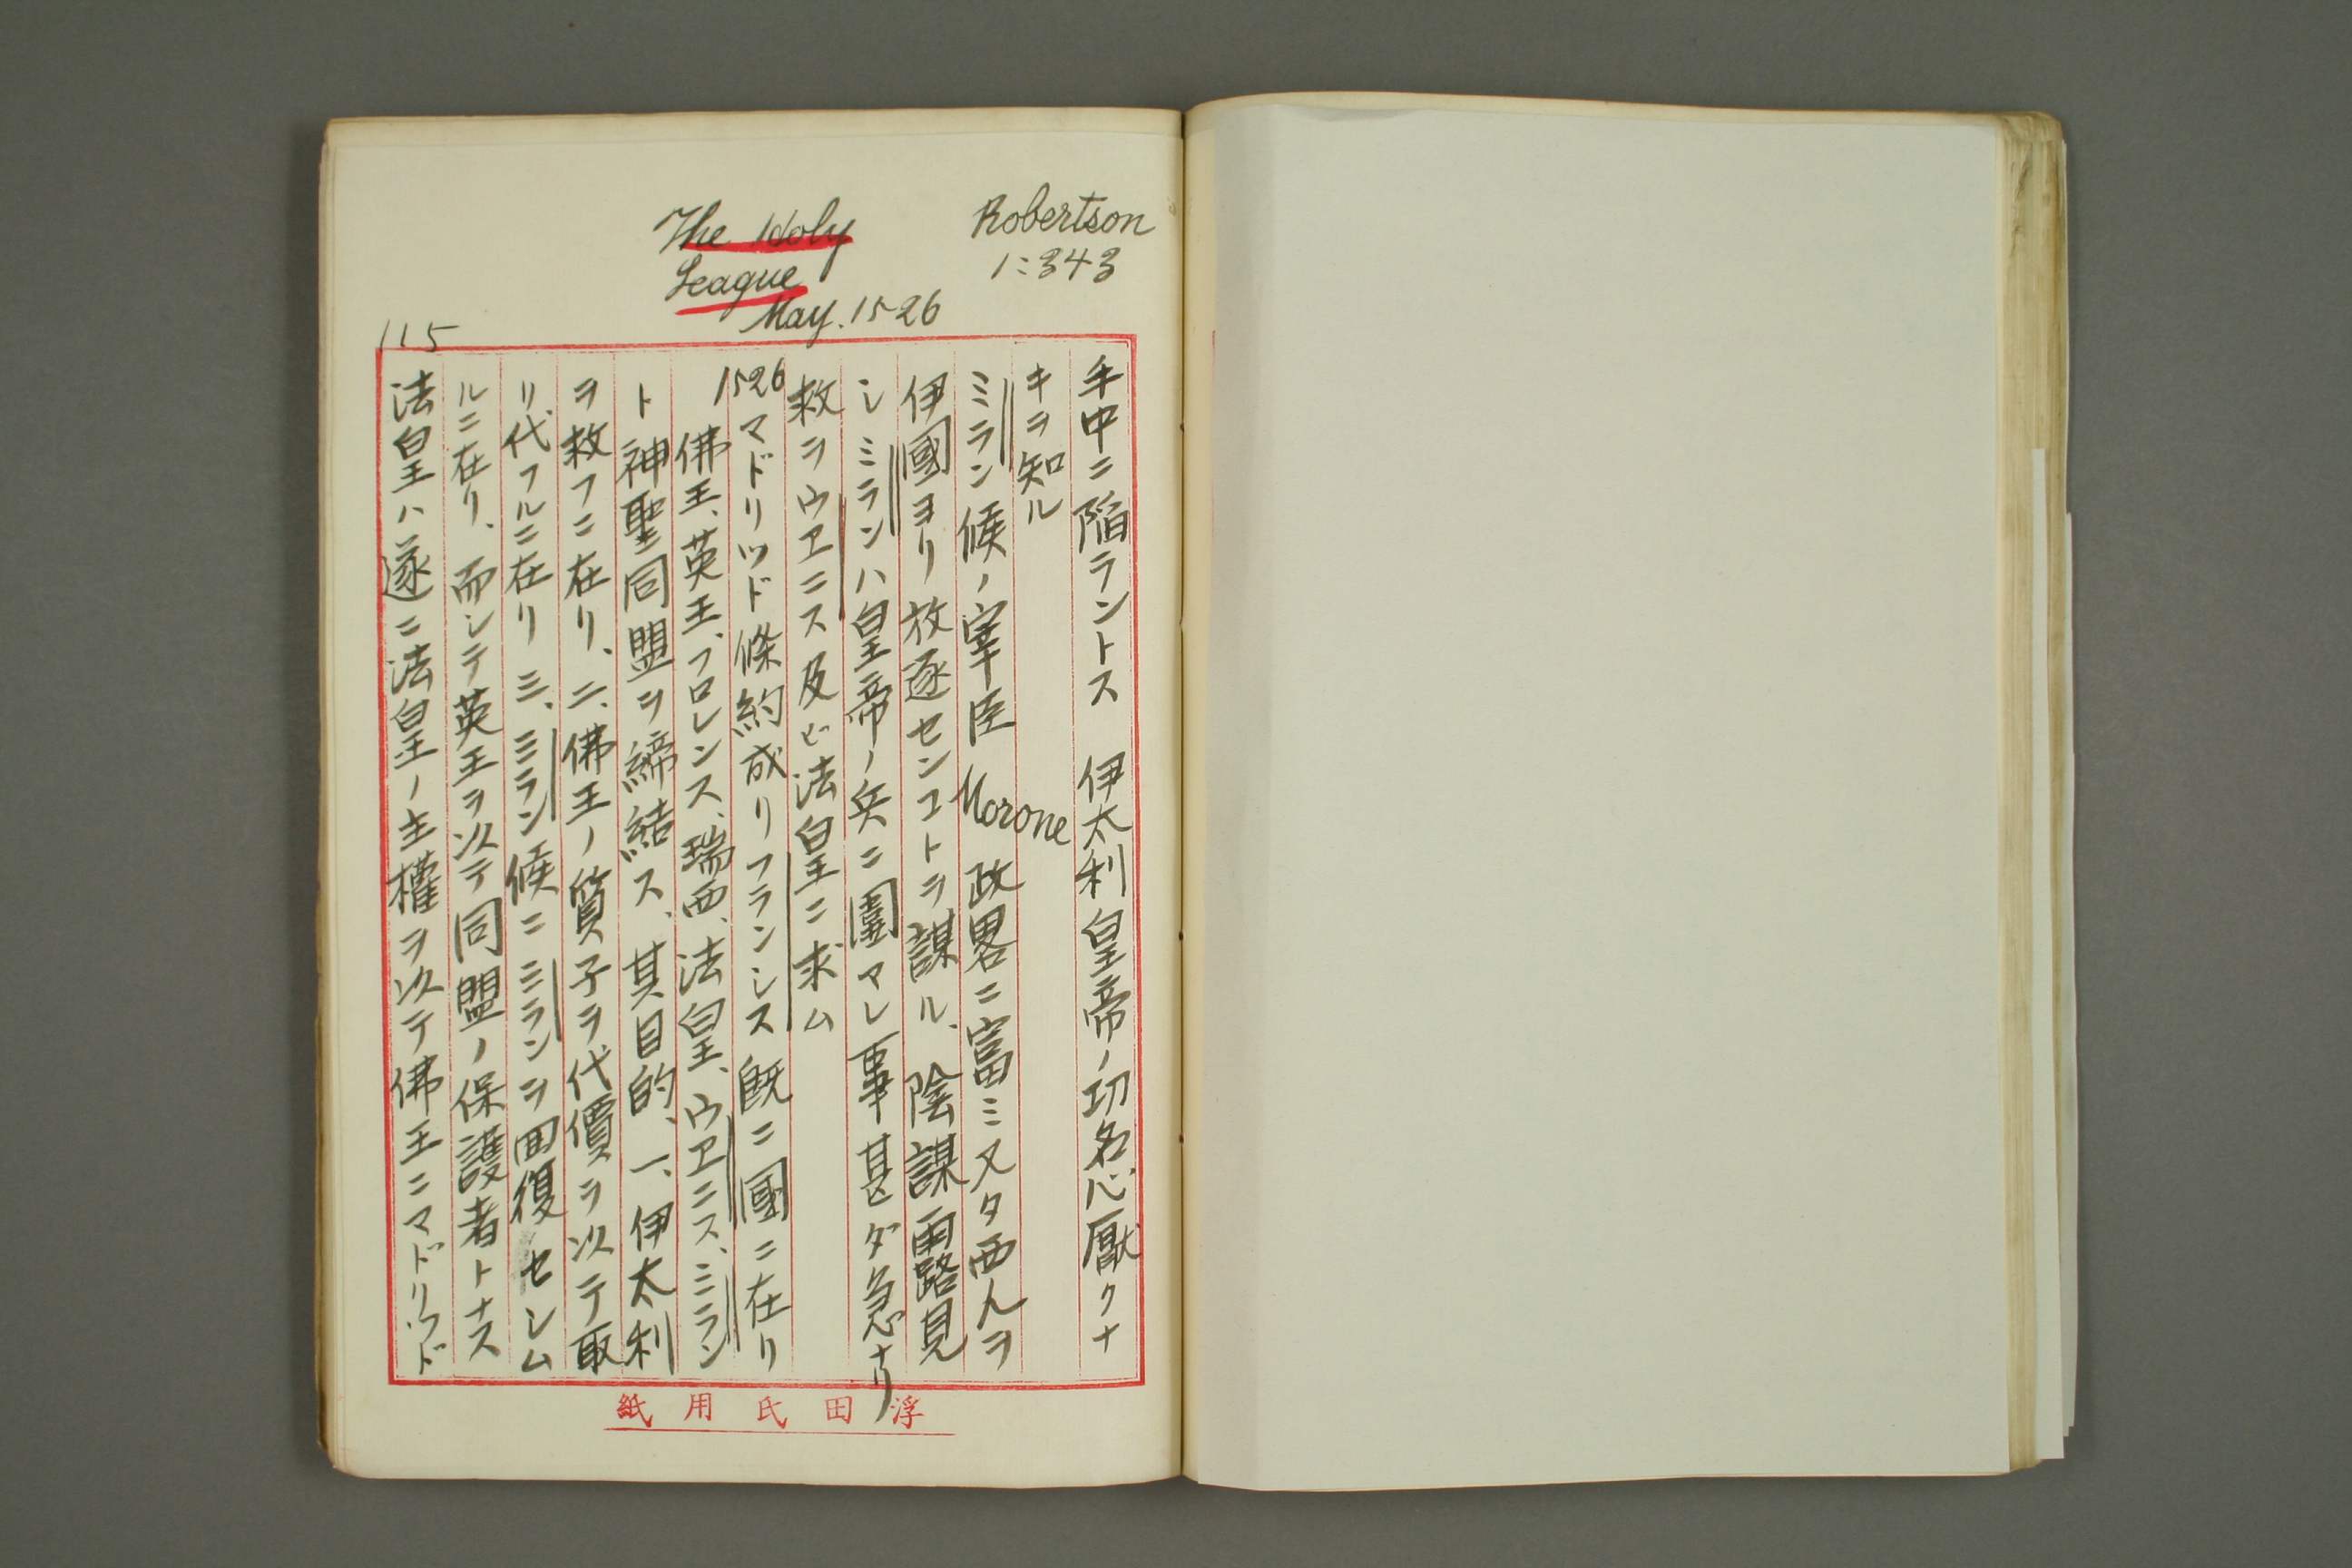 Robertson
1:343
The Holy
League
May. 1526
115
手中ニ陥ラントス 伊太利皇帝ノ功名心厭クナ
キヲ知ル
ミラン候ノ宰臣 Morone 政畧ニ富ミ又タ西人ヲ
伊國ヨリ放逐センコトヲ謀ル、陰謀露見
シミランハ皇帝ノ兵ニ圍マレ事甚ダ急ナリ
救ヲウヱニス及ビ法皇ニ求ム
1526 マドリツド條約成リフランシス既ニ國ニ在リ
佛王、英王、フロレンス、瑞西、法皇、ウヱニス、ミラン
ト神聖同盟ヲ締結ス、其目的、一、伊太利
ヲ救フニ在リ、二、佛王ノ質子ヲ代價ヲ以テ取
リ代フルニ在リ 三、ミラン候ニミランヲ回復セシム
ルニ在リ、而シテ英王ヲ以テ同盟ノ保護者トナス
法皇ハ遂ニ法皇ノ主權ヲ以テ佛王ニマドリツド
浮田氏用紙